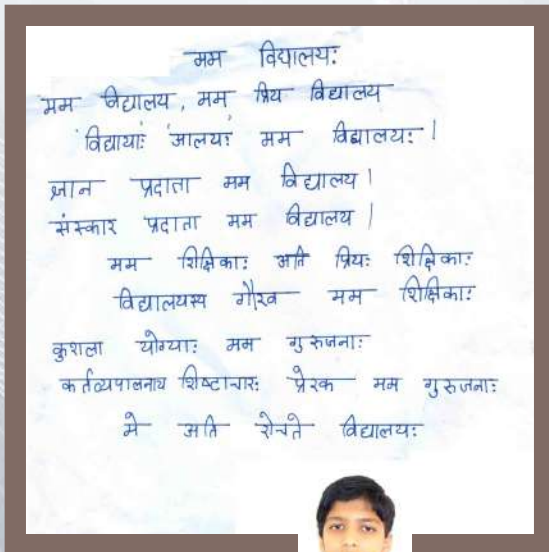 मम विद्यालयः
मम विद्यालय, मम प्रिय विद्यालय
विद्यायाः आलयः मम विद्यालयः।
ज्ञान प्रदाता मम विद्यालय।
संस्कार प्रदाता मम विद्यालय।
मम शिक्षिकाः अति प्रियः शिक्षिकाः
विद्यालयस्य गौरव मम शिक्षिकाः
कुशला योग्याः मम गुरुजनाः
कर्तव्यपालनाय शिष्टाचारः प्रेरक मम गुरुजनाः
मे अति रोचते विद्यालयः